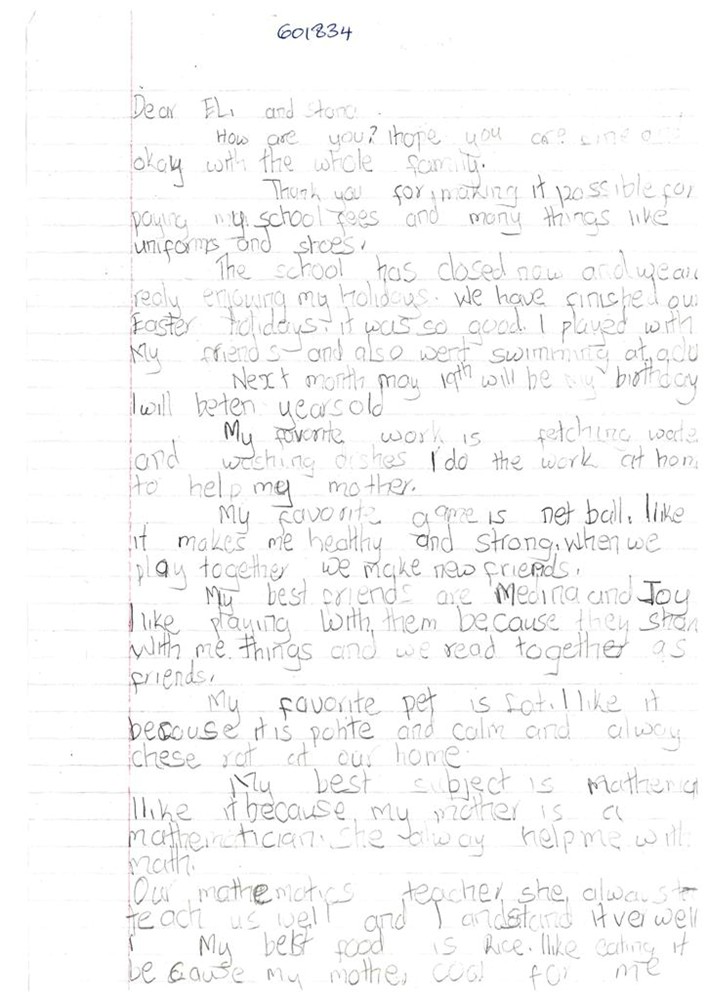 601834
Dear Eli and Stana.
How are you? I hope you are fine and
okay with the whole family.
Thank you for making it possible for
paying my school fees and many things like
uniforms and shoes.
The school has closed now and we are
realy enjoying my holidays. We have finished our
Easter holidays. it was so good. I played with
My friends and also went swimming at
Next month may 19th will be my birthday
I will be ten years old
My favorite work is fetching wate
and washing dishes I do the work at hom
to help me my mother.
My favorite game is net ball. I like
it makes me healthy and strong. when we
play together we make new friends.
My best friends are Medina and Joy
I like playing with them because they
With me things and we read together as
friends.
My favorite pet is I like it
because it is polite and calm and alway
chese rat at our home.
My best subject is Mathema
I like it because my mother is a
mathematician. She alway help me with
math.
Our mathematics teacher she always
teach us well and I andstand it ver well
My best food is Rice. I like eating it
because my mother cook for me